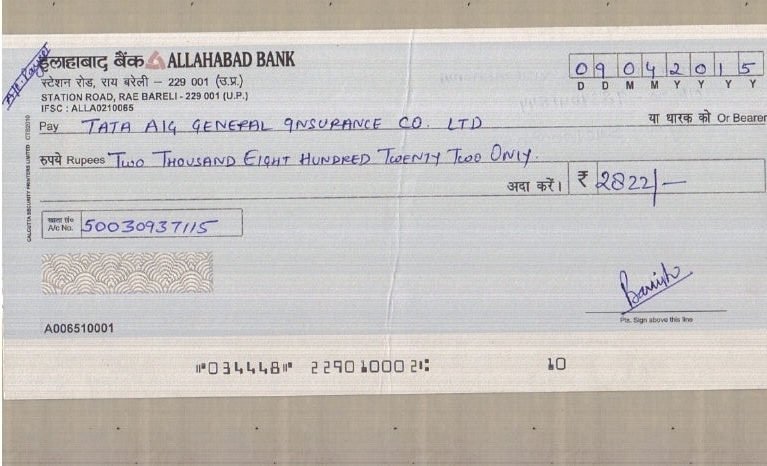 A/C. Payee
इलाहाबाद बैंक ALLAHABAD BANK
स्टेशन रोड, राय बरेली - 229 001 (उ.प्र.)
STATION ROAD, RAE BARELI - 229 001 (U.P.)
IFSC : ALLA0210065
09042015
D D M M Y Y Y Y
Pay TATA AIG GENERAL INSURANCE CO. LTD या धारक को Or Bearer
रुपये Rupees TWO THOUSAND EIGHT HUNDRED TWENTY TWO ONLY.
अदा करें। ₹ 2822/-
खाता सं०
A/c No. 50030937115
CALCUTTA SECURITY PRINTERS LIMITED CTS2010
Pls. Sign above this line
A006510001
⑈034448⑈ 229010002⑆ 10